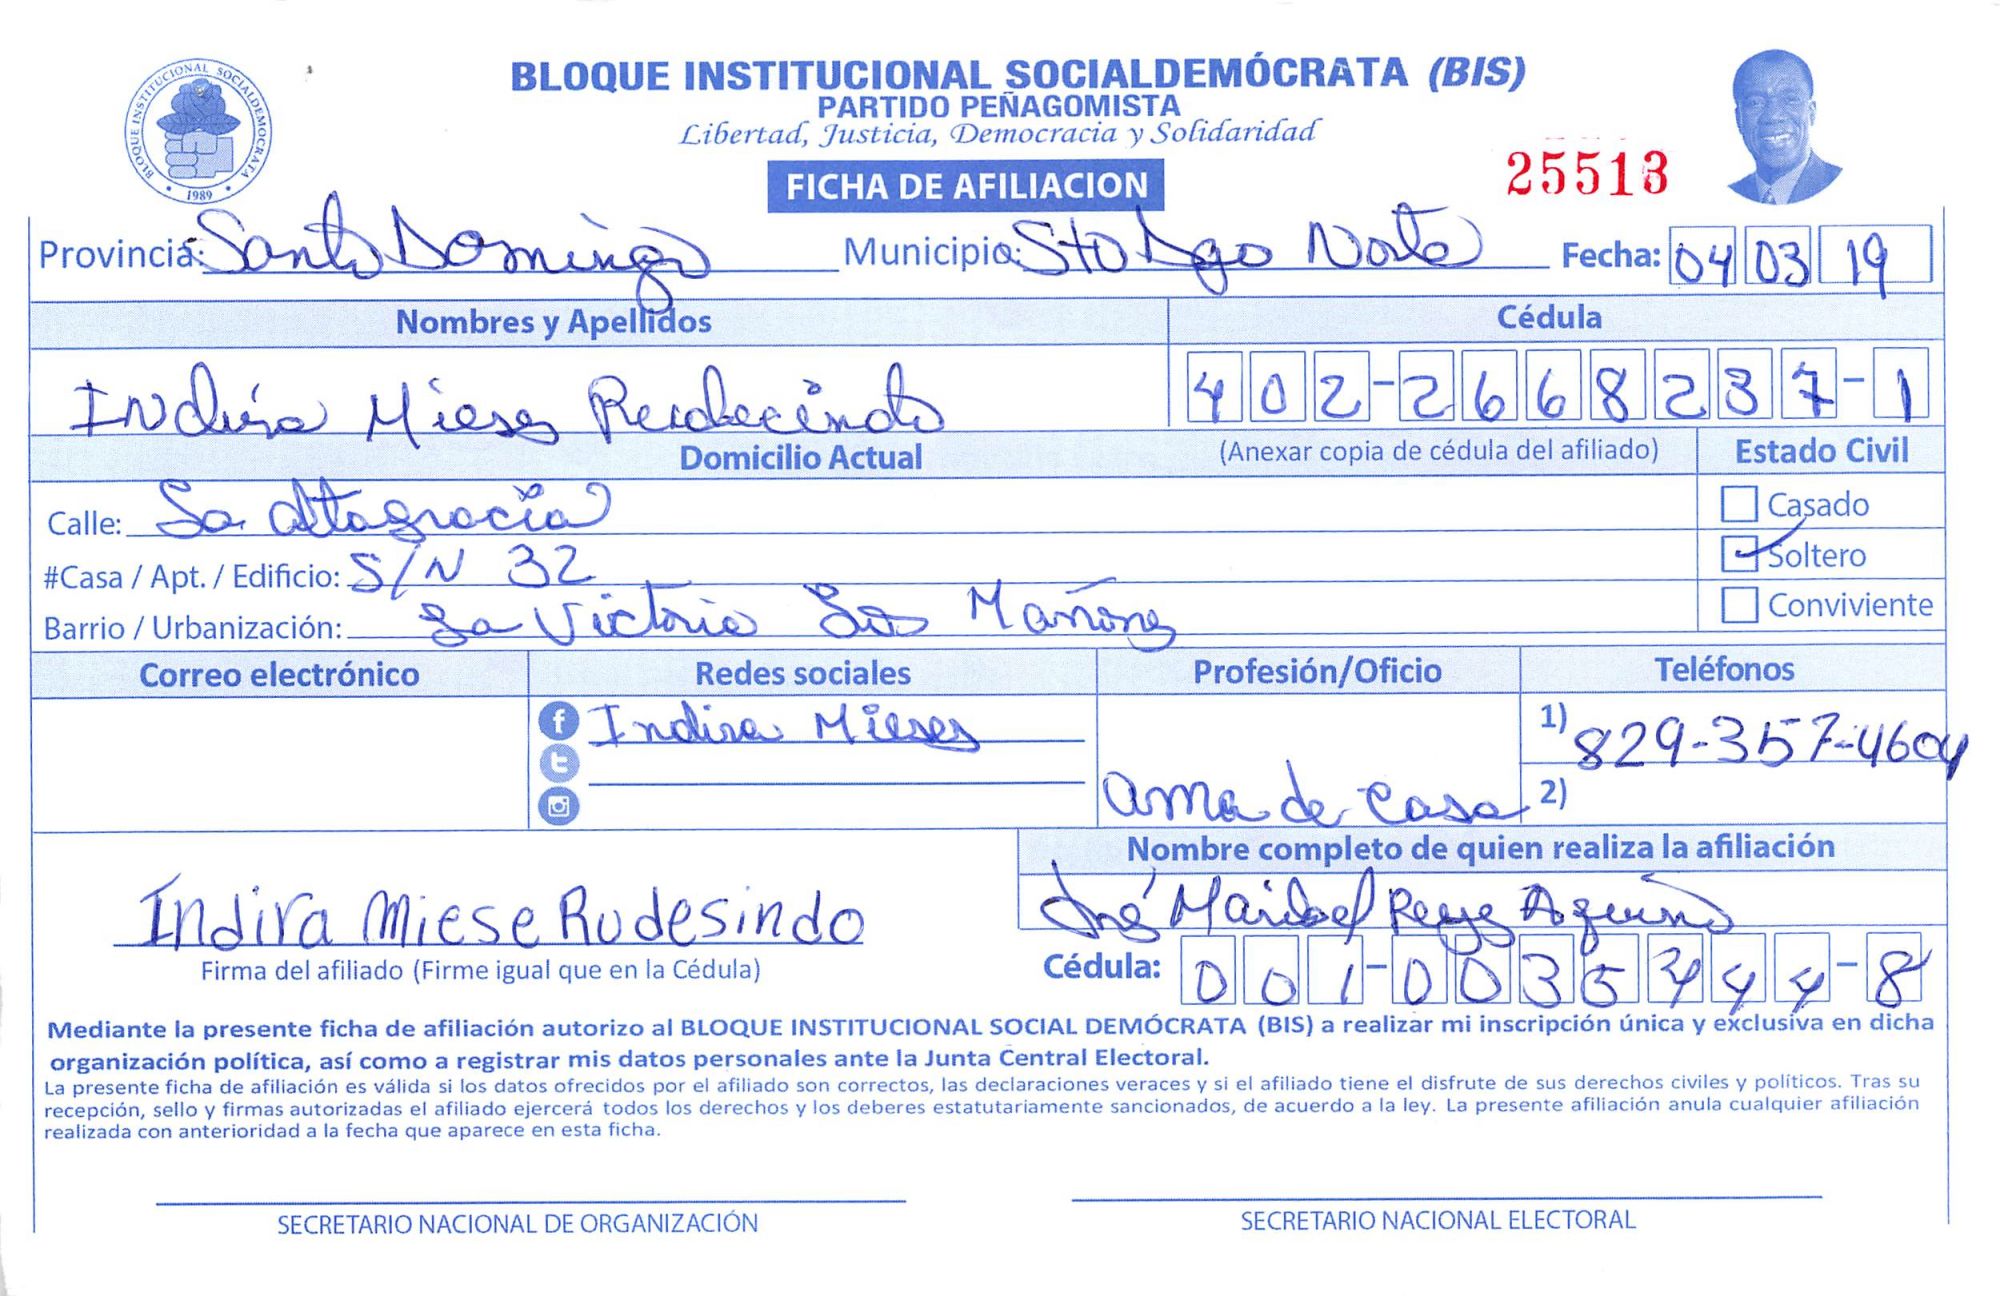 BLOQUE INSTITUCIONAL SOCIALDEMÓCRATA (BIS)
PARTIDO PEÑAGOMISTA
Libertad, Justicia, Democracia y Solidaridad
BLOQUE INSTITUCIONAL SOCIALDEMOCRATA
1989
25513
FICHA DE AFILIACION
Provincia: Santo Domingo Municipio: Sto Dgo Norte Fecha: 04 03 19
Nombres y Apellidos Cédula
Indira Mieses 402-2668237-1
Domicilio Actual (Anexar copia de cédula del afiliado) Estado Civil
Calle: La Altagracia Casado
#Casa / Apt. / Edificio: S/N 32 Soltero
Barrio / Urbanización: La Victoria Los Mañones Conviviente
Correo electrónico Redes sociales Profesión/Oficio Teléfonos
Indira Mieses 1) 829-357-4604
ama de casa 2)
Nombre completo de quien realiza la afiliación
Indira Miese Rudesindo José Reyes Aquino
Firma del afiliado (Firme igual que en la Cédula) Cédula: 001-0035444-8
Mediante la presente ficha de afiliación autorizo al BLOQUE INSTITUCIONAL SOCIAL DEMÓCRATA (BIS) a realizar mi inscripción única y exclusiva en dicha
organización política, así como a registrar mis datos personales ante la Junta Central Electoral.
La presente ficha de afiliación es válida si los datos ofrecidos por el afiliado son correctos, las declaraciones veraces y si el afiliado tiene el disfrute de sus derechos civiles y políticos. Tras su
recepción, sello y firmas autorizadas el afiliado ejercerá todos los derechos y los deberes estatutariamente sancionados, de acuerdo a la ley. La presente afiliación anula cualquier afiliación
realizada con anterioridad a la fecha que aparece en esta ficha.
SECRETARIO NACIONAL DE ORGANIZACIÓN SECRETARIO NACIONAL ELECTORAL